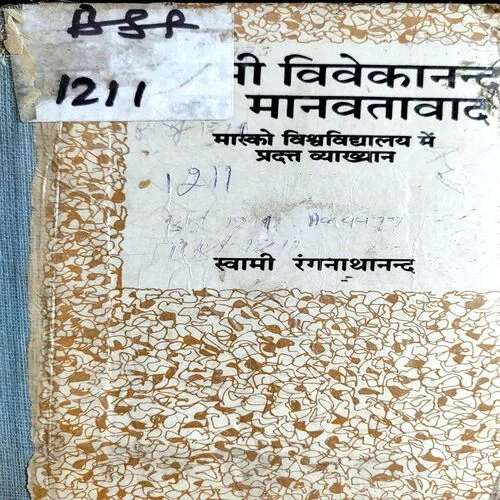 B S R
1211
मी विवेकानन्द
मानवतावाद
मास्को विश्वविद्यालय में
प्रदत्त व्याख्यान
1211
स्वामी रंगनाथानन्द